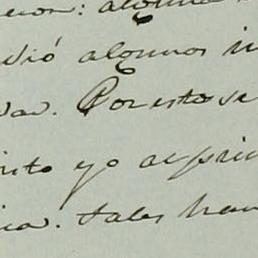 cion: alguna
dió algunos in
da. Por esto se
ito yo al prin
ica. tales han